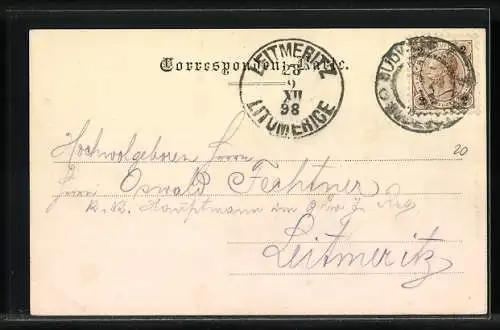 Correspondenz-Karte.
LEITMERITZ
28
9
XII
98
LITOMĚŘICE
BUDW
20
Hochwolgeboren Herrn
Herrn Oswald Fechtner
k. k. Hauptmann im
Leitmeritz